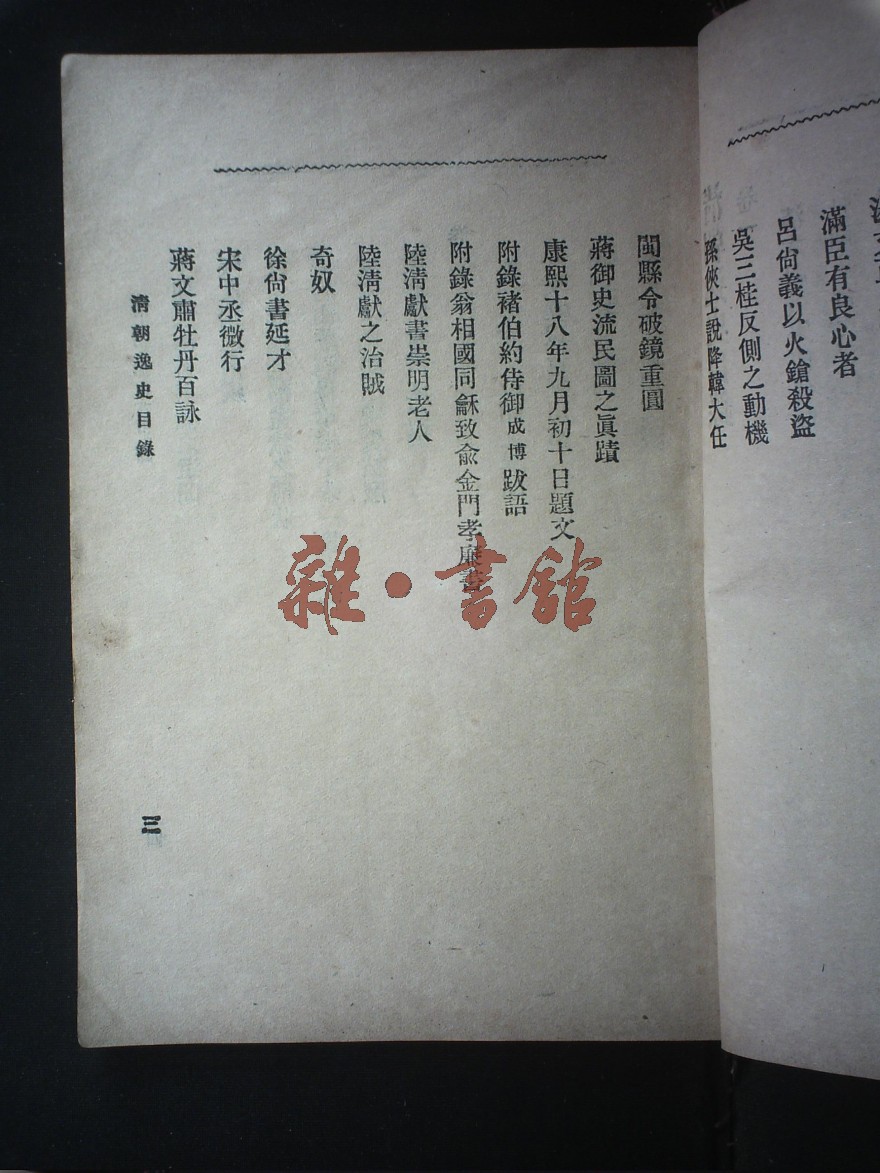 滿臣有良心者
呂尙義以火鎗殺盜
吳三桂反側之動機
孫俠士說降韓大任
閩縣令破鏡重圓
蔣御史流民圖之眞蹟
康熙十八年九月初十日題文
附錄褚伯約侍御成博跋語
附錄翁相國同龢致兪金門孝廉書
陸淸獻書崇明老人
陸淸獻之治賊
奇奴
徐尙書延才
宋中丞微行
蔣文肅牡丹百詠
淸朝逸史目錄
三
雜·書館